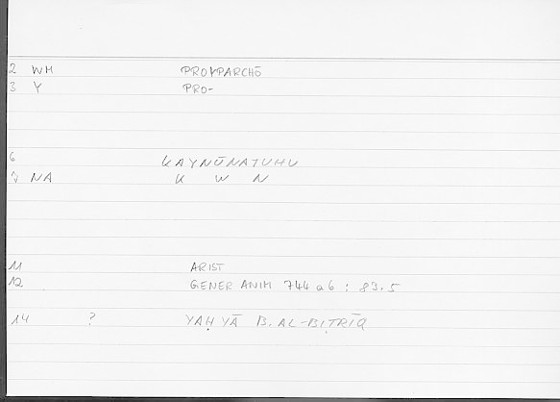 2 WM PROYPARCHŌ
3 Y PRO-
6 KAYNŪNATUHU
7 NA K W N
11 ARIST
12 GENER ANIM 744 a 6 : 83.5
14 ? YAḤYĀ B. AL-BIṬRĪQ